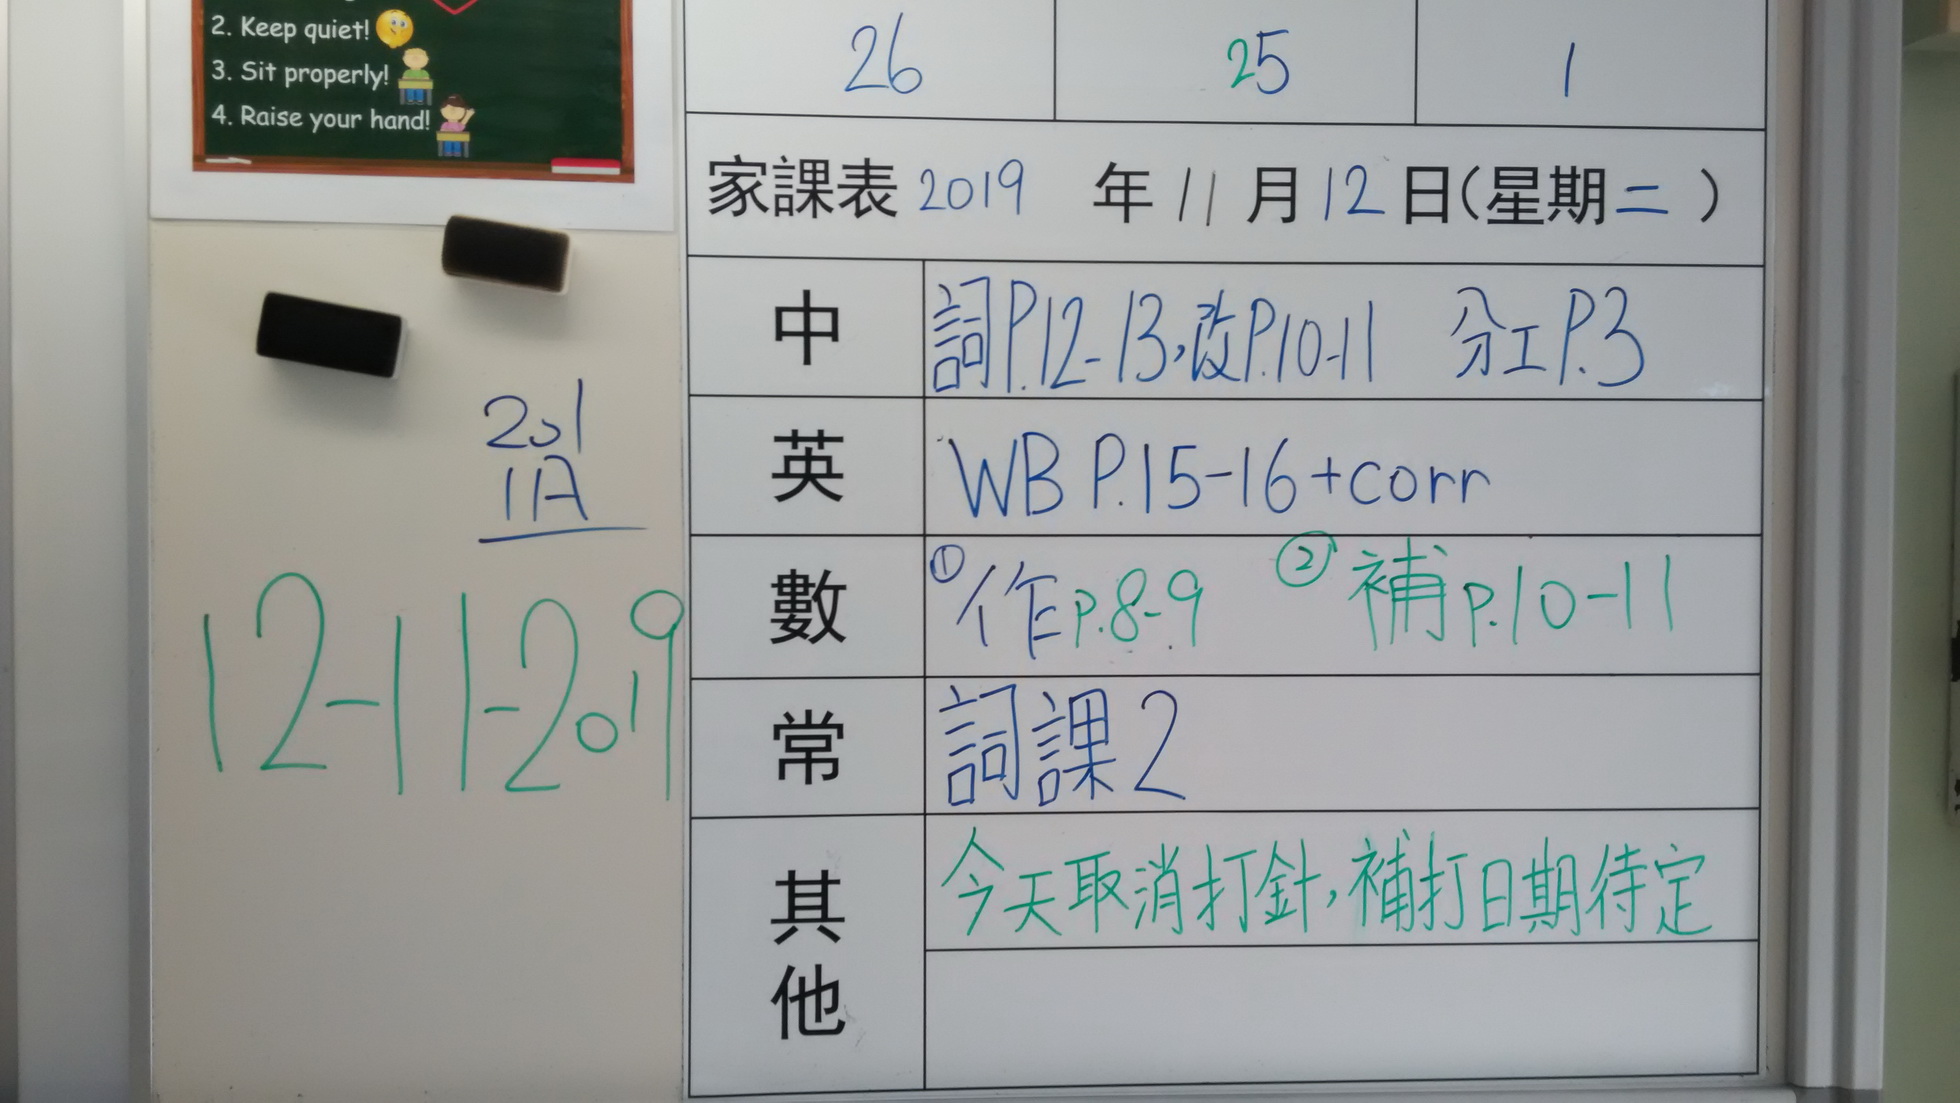 2. Keep quiet!
3. Sit properly!
4. Raise your hand!
26 25 1
家課表 2019 年 11 月 12 日(星期二)
中 詞P.12-13,改P.10-11 分工P.3
英 WB P.15-16+corr
數 ①作p.8-9 ②補p.10-11
常 詞課2
其他 今天取消打針,補打日期待定
201
1A
12-11-2019